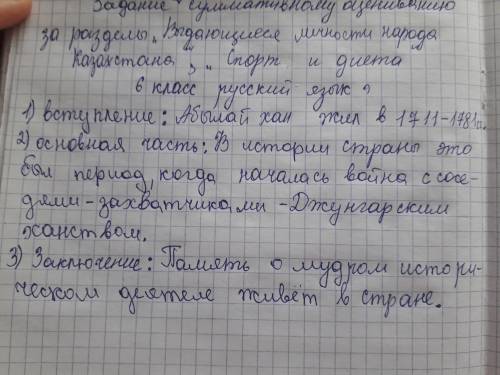 Задание суммативному оцениванию
за разделы „Выдающиеся личности народа
Казахстана", „Спорт и диета
6 класс русский язык?
1) вступление: Абылай хан жил в 1711-1781г.
2) основная часть: В истории страны это
был период, когда началась война с сосе-
дями-захватчиками -Джунгарским
ханством.
3) Заключение: Память о мудром истори-
ческом деятеле живёт в стране.